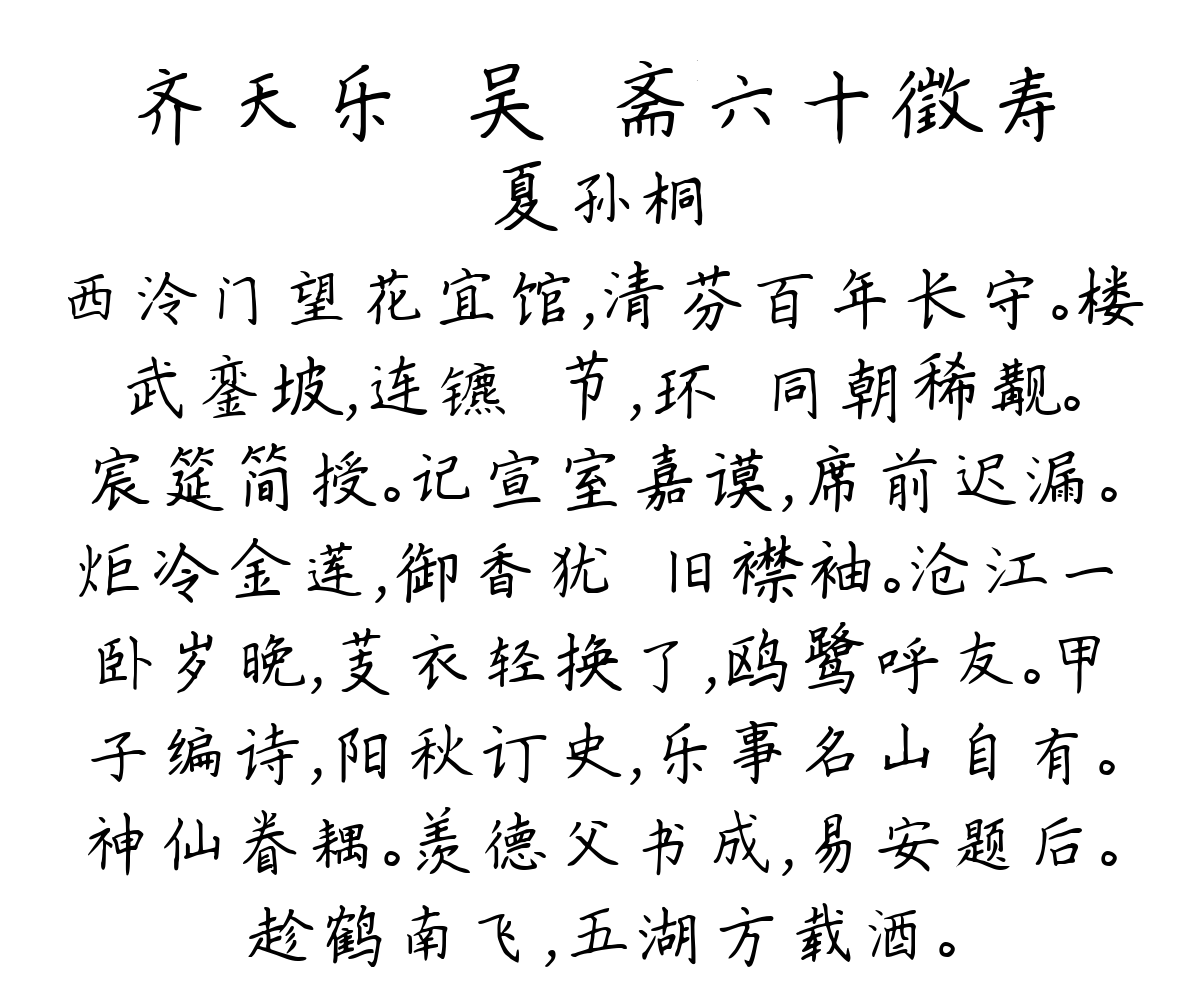 齐天乐 吴 斋六十徵寿
夏孙桐
西泠门望花宜馆,清芬百年长守。楼
武銮坡,连镳 节,环 同朝稀觏。
宸筵简授。记宣室嘉谟,席前迟漏。
炬冷金莲,御香犹 旧襟袖。沧江一
卧岁晚,芰衣轻换了,鸥鹭呼友。甲
子编诗,阳秋订史,乐事名山自有。
神仙眷耦。羡德父书成,易安题后。
趁鹤南飞,五湖方载酒。